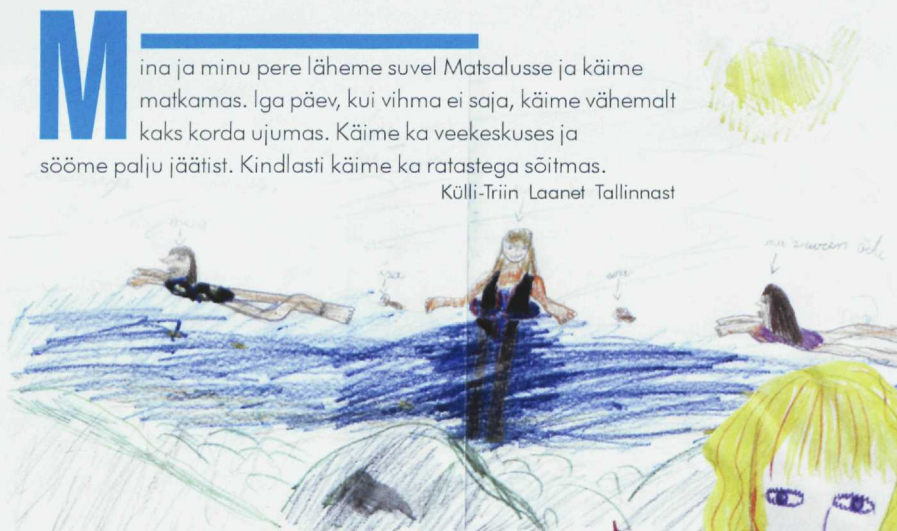 Mina ja minu pere läheme suvel Matsalusse ja käime
matkamas. Iga päev, kui vihma ei saja, käime vähemalt
kaks korda ujumas. Käime ka veekeskuses ja
sööme palju jäätist. Kindlasti käime ka ratastega sõitmas.
Külli-Triin Laanet Tallinnast
mu suurem õde